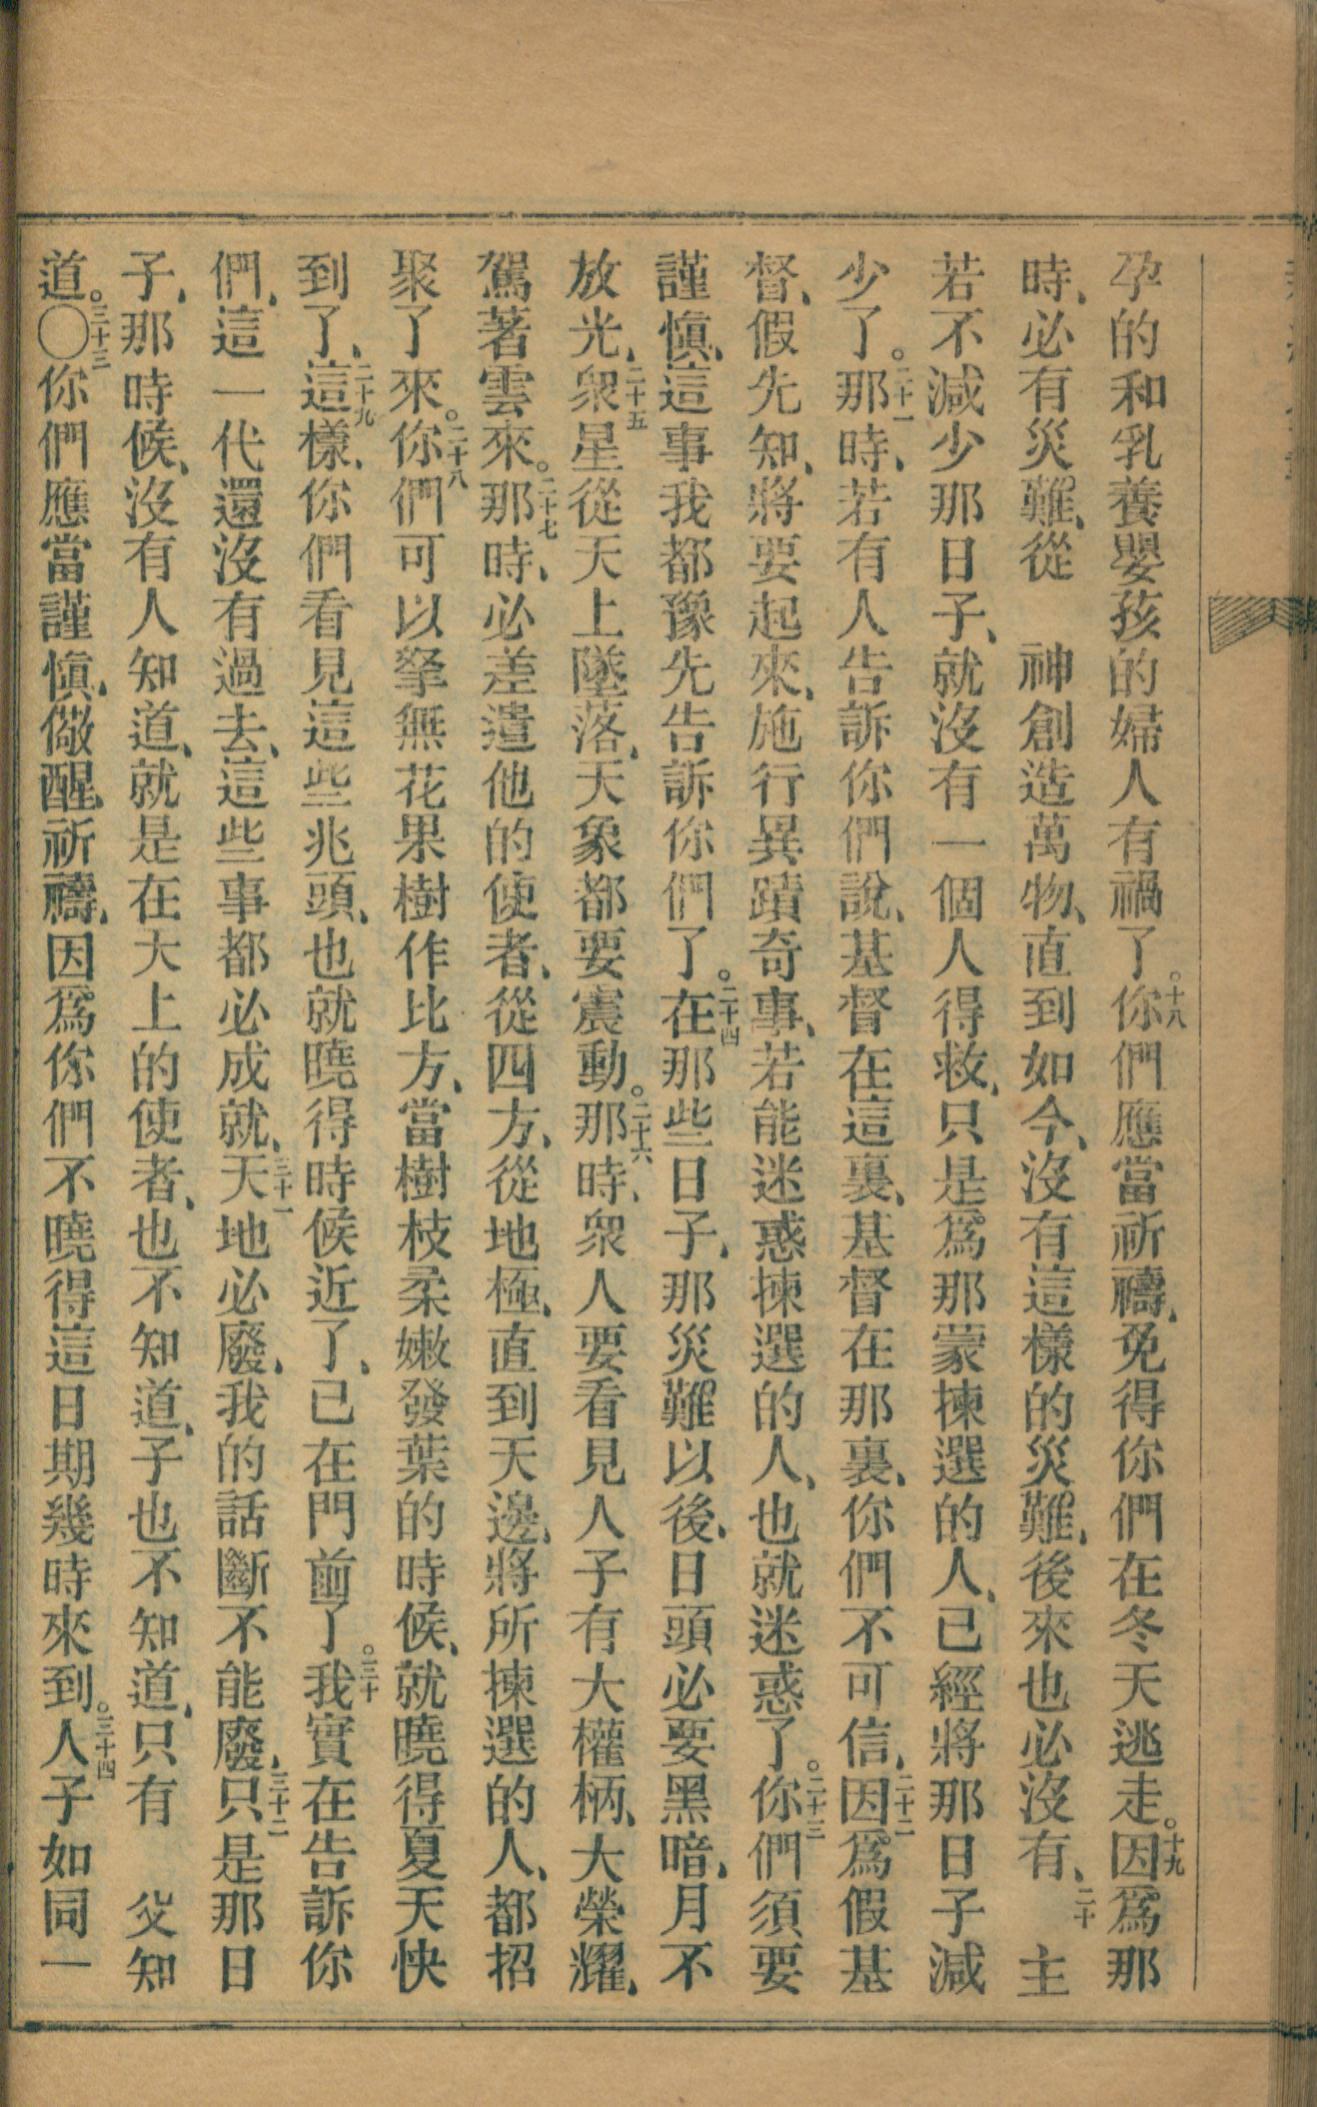 孕的和乳養嬰孩的婦人有禍了。十八你們應當祈禱、免得你們在冬天逃走。十九因爲那
時、必有災難、從　神創造萬物、直到如今、沒有這樣的災難、後來也必沒有、二十　主
若不減少那日子、就沒有一個人得救、只是爲那蒙揀選的人、已經將那日子減
少了。二十一那時、若有人告訴你們說、基督在這裏、基督在那裏、你們不可信、二十二因爲假基
督、假先知、將要起來、施行異蹟奇事、若能迷惑揀選的人、也就迷惑了。二十三你們須要
謹愼、這事我都豫先告訴你們了。二十四在那些日子、那災難以後、日頭必要黑暗、月不
放光、二十五衆星從天上墜落、天象都要震動。二十六那時、衆人要看見人子有大權柄、大榮耀、
駕著雲來。二十七那時、必差遣他的使者、從四方、從地極、直到天邊、將所揀選的人、都招
聚了來。二十八你們可以拏無花果樹作比方、當樹枝柔嫩發葉的時候、就曉得夏天快
到了、二十九這樣、你們看見這些兆頭、也就曉得時候近了、已在門前了。三十我實在告訴你
們、這一代還沒有過去、這些事都必成就、三十一天地必廢、我的話斷不能廢、三十二只是那日
子、那時候、沒有人知道、就是在天上的使者、也不知道、子也不知道、只有　父知
道。三十三〇你們應當謹愼、儆醒、祈禱、因爲你們不曉得這日期幾時來到。三十四人子如同一